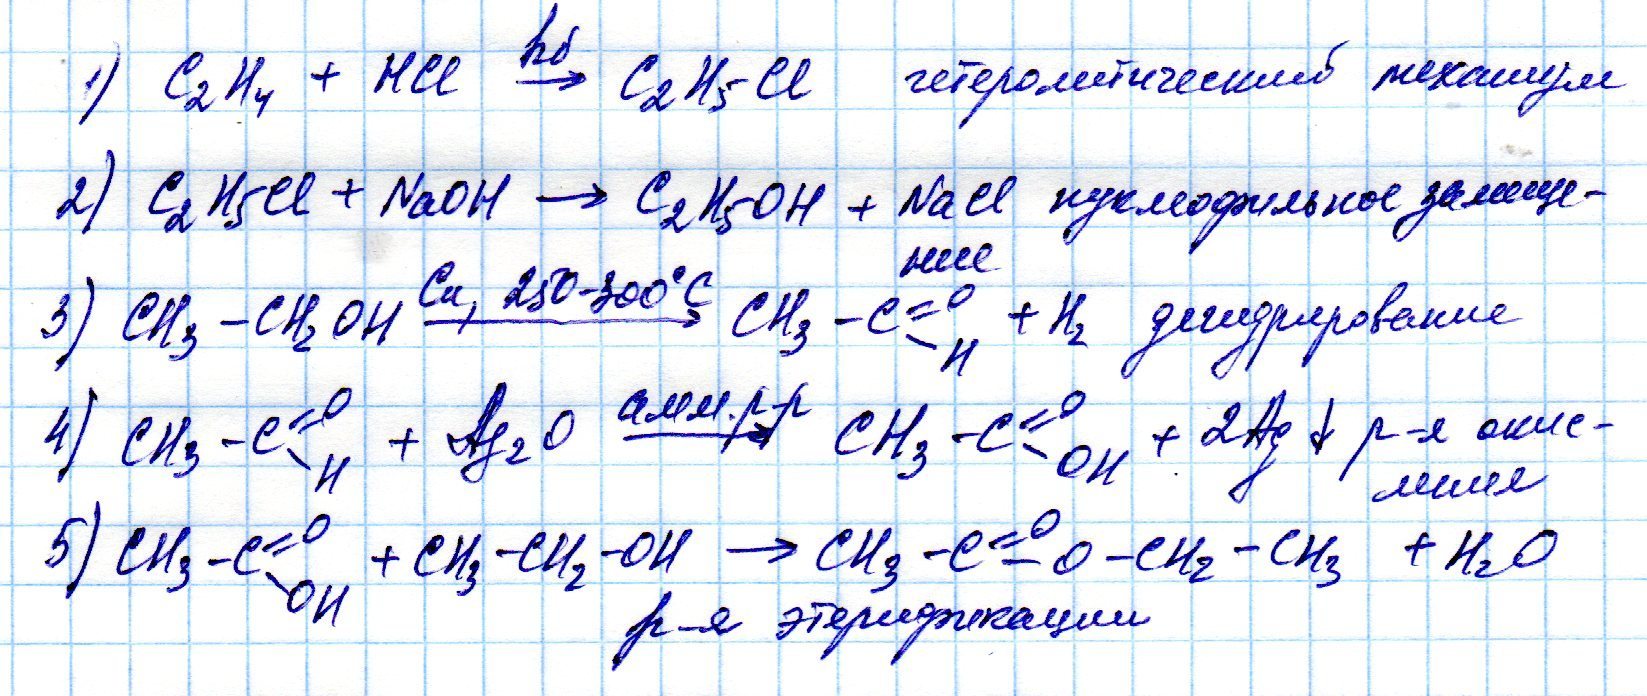 1) C₂H₄ + HCl →(hδ) C₂H₅Cl гетеролитический механизм
2) C₂H₅Cl + NaOH → C₂H₅OH + NaCl нуклеофильное замеще-
ние
3) CH₃ – CH₂OH →(Cu, 250-300°C) CH₃ – C(=O)–H + H₂ дегидрирование
4) CH₃ – C(=O)–H + Ag₂O →(амм. р-р) CH₃ – C(=O)–OH + 2Ag↓ р-я окис-
ления
5) CH₃ – C(=O)–OH + CH₃ – CH₂ – OH → CH₃ – C(=O) – O – CH₂ – CH₃ + H₂O
р-я этерификации